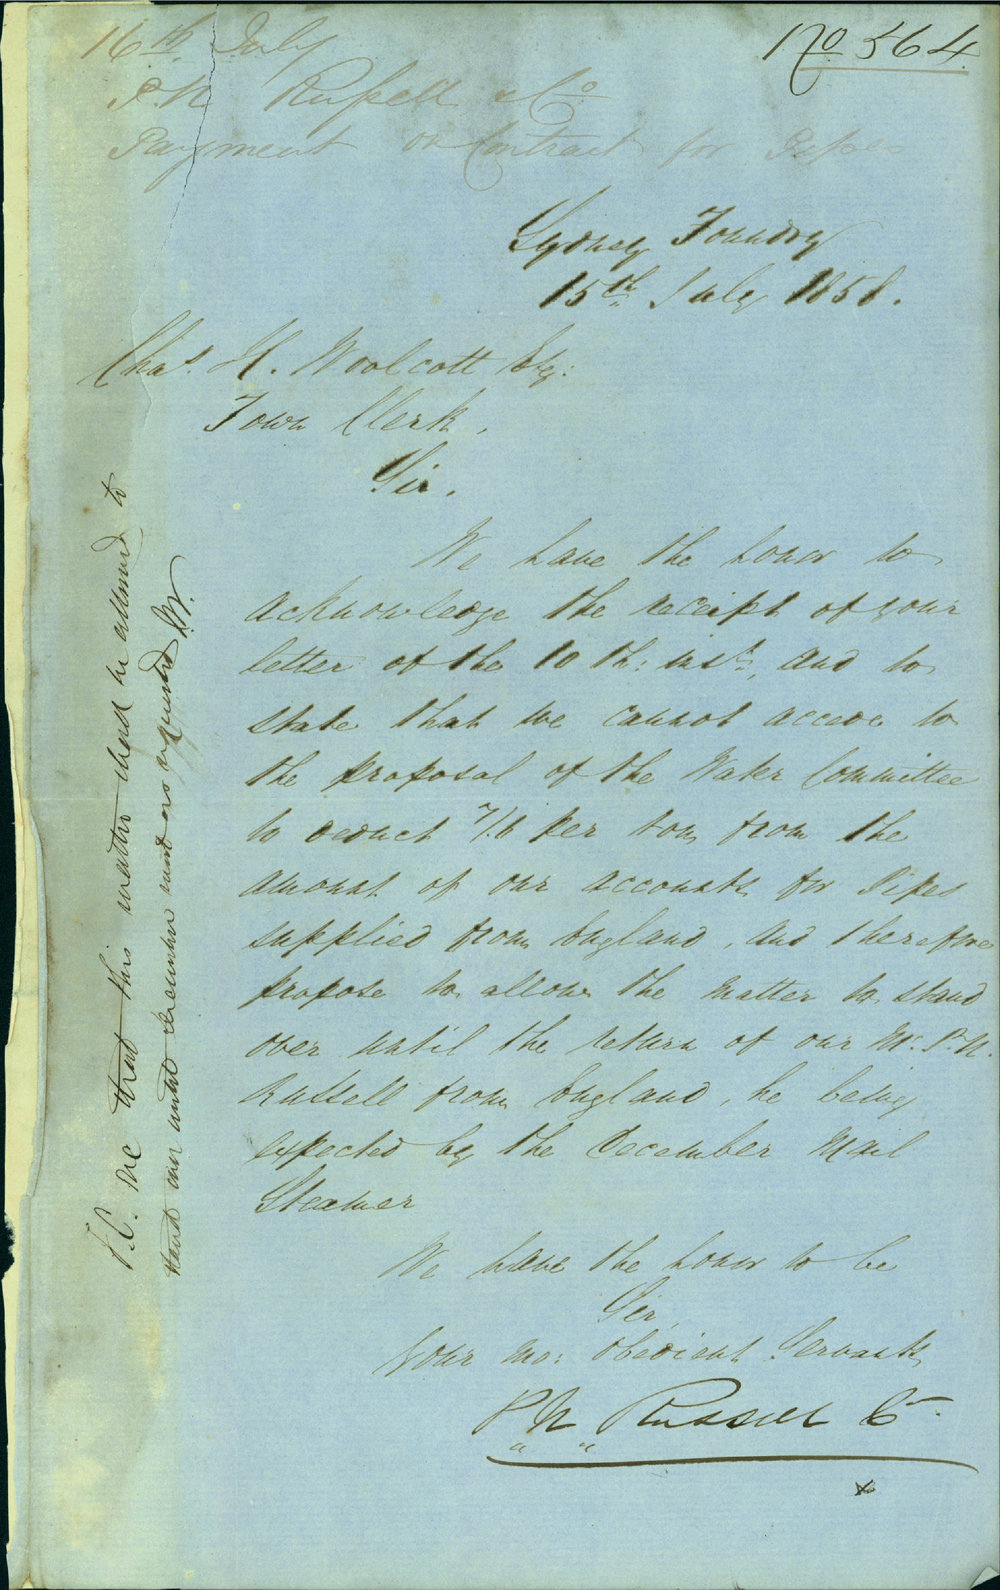 No 564
16th July
P.N. Russell & Co
Payment on Contract for Pipes
Sydney Foundry
15th July 1858.
Chas. H. Woolcott Esq:
Town Clerk,
Sir.
We have the honor to
acknowledge the receipt of your
letter of the 10th: inst., and to
state that we cannot accede to
the proposal of the Water Committee
to deduct 7/6 per ton from the
amount of our accounts for Pipes
supplied from England, and therefore
propose to allow the matter to stand
over until the return of our Mr. P.N.
Russell from England, he being
expected by the December Mail
Steamer
We have the honor to be
Sir,
Your mo: obedient Servants,
P. N. Russell Co.
x
that this matter should be allowed to
stand over until December next as requested